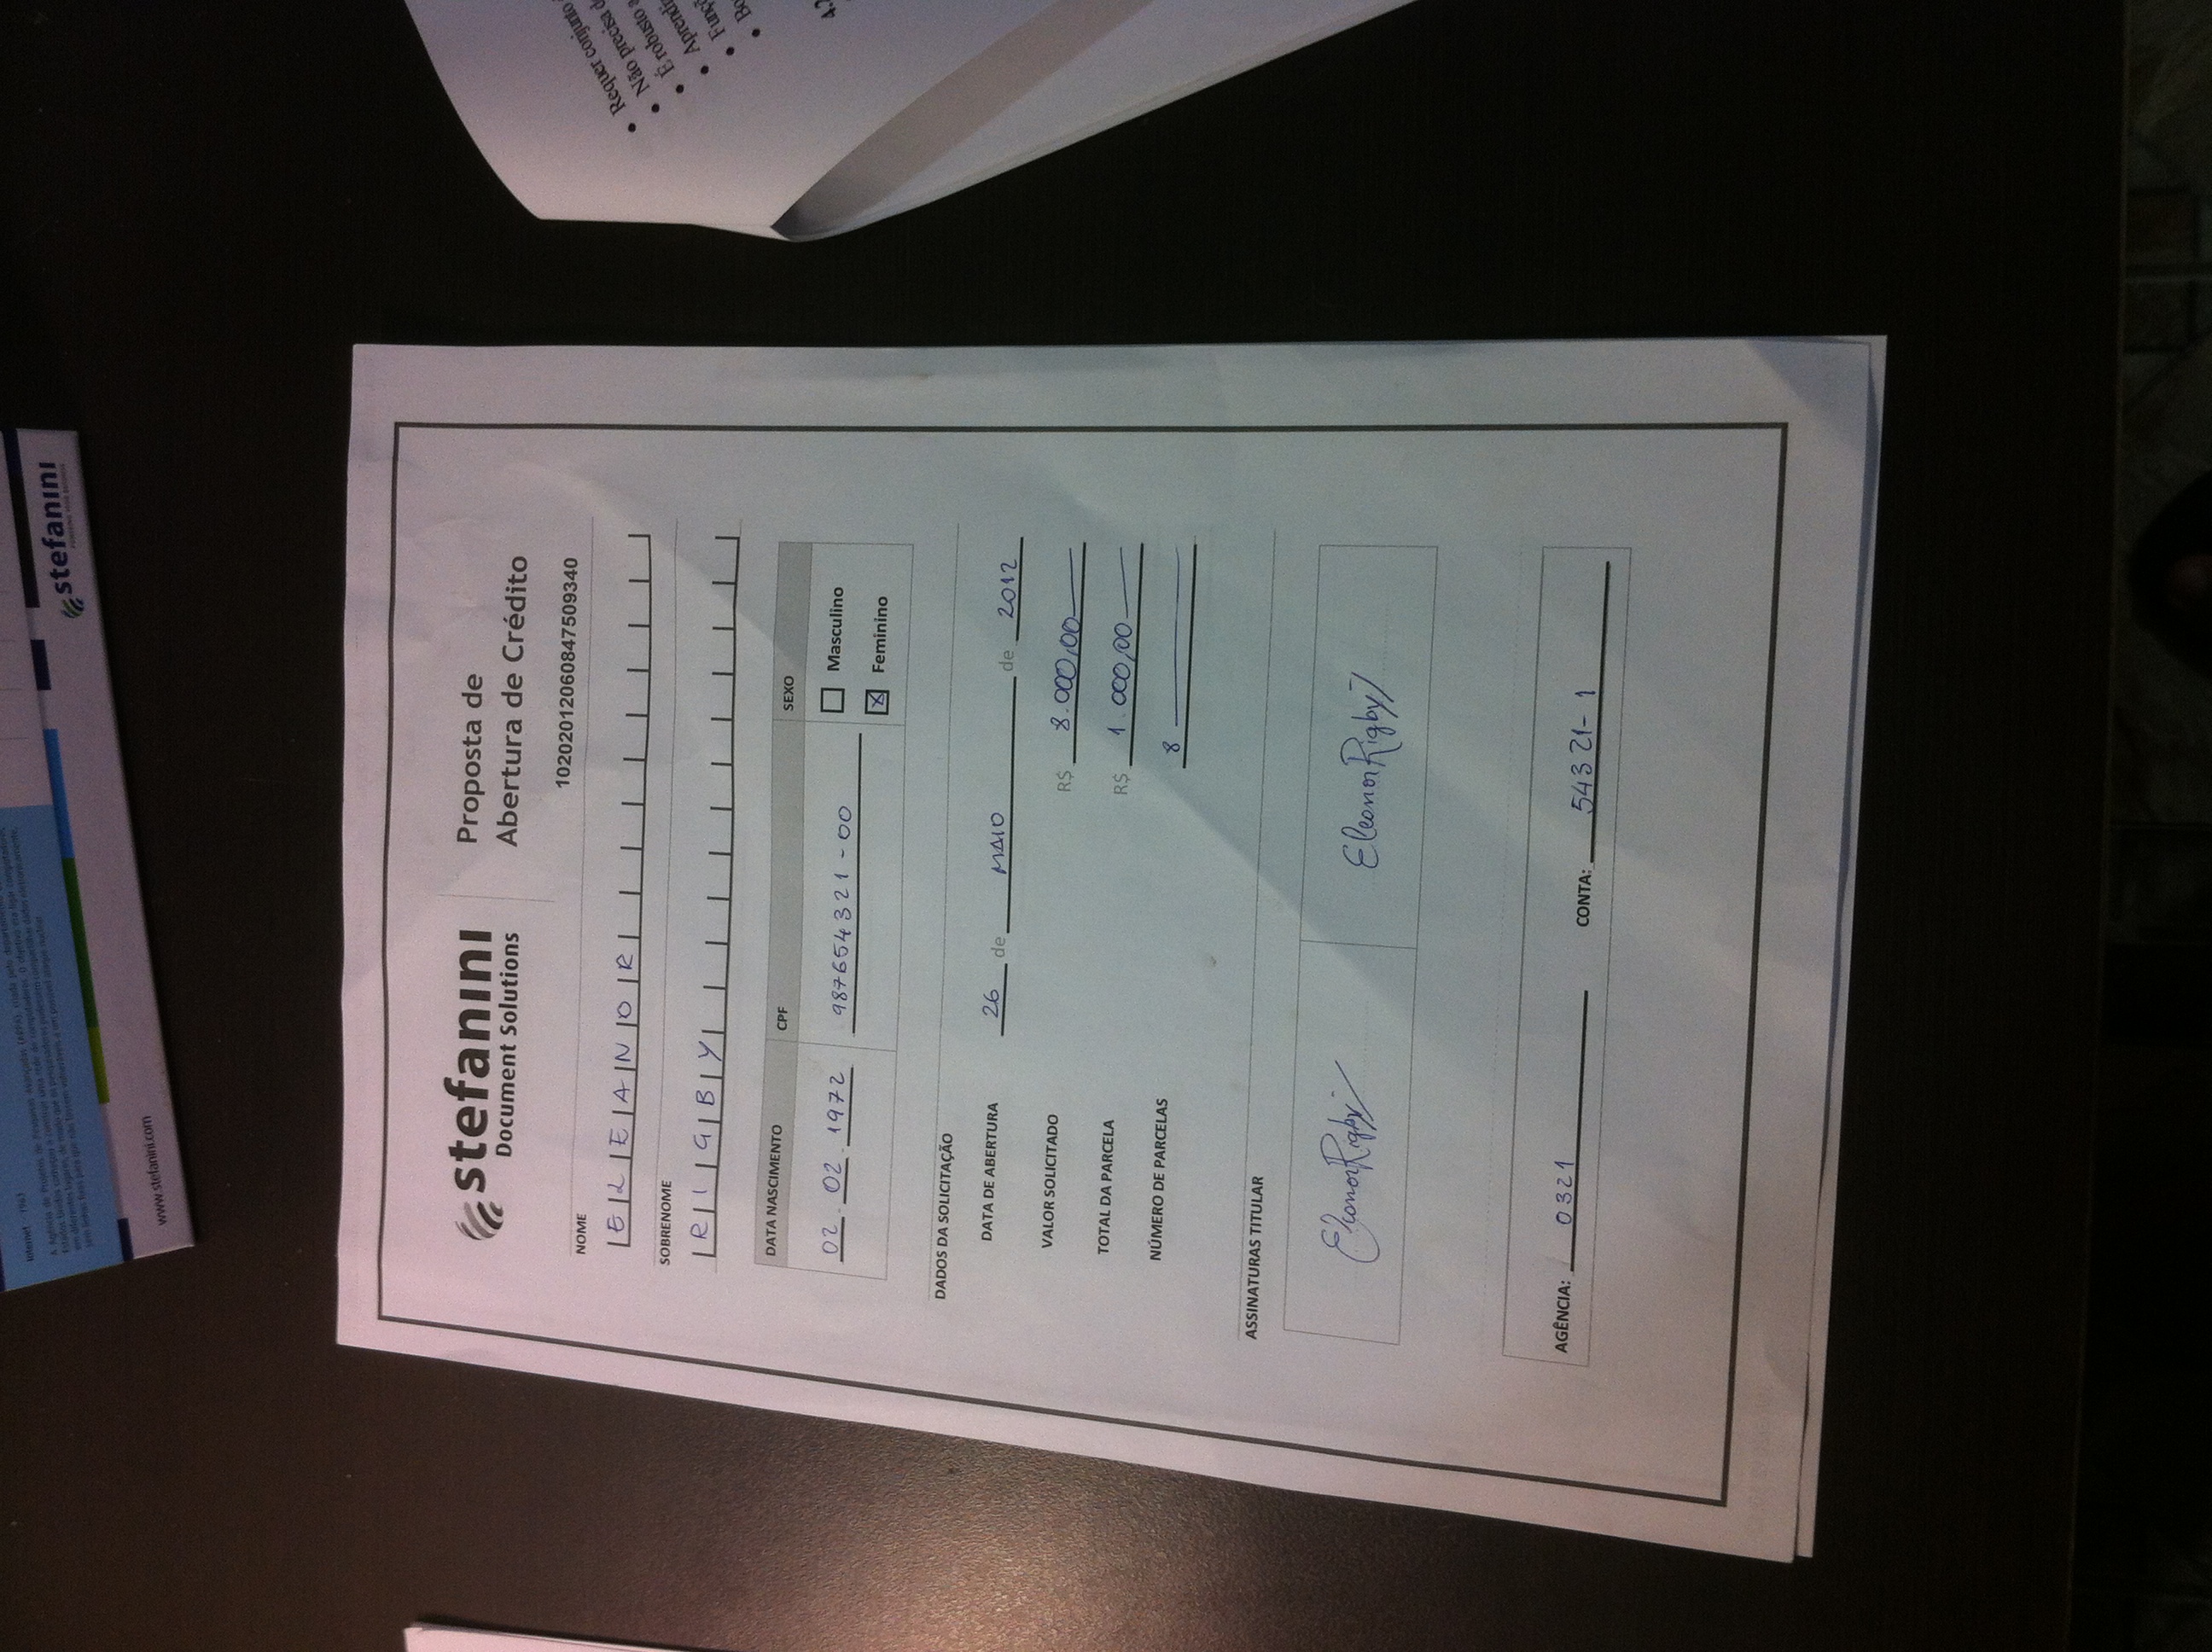 Internet - 1963
A Agência de Projetos de Pesquisas Avançadas (ARPA), criada pelo departamento
Estados Unidos começou a construir uma rede de computadores. O objetivo era ligar computadores
em diferentes lugares, de modo que os pesquisadores pudessem compartilhar dados eletronicamente,
sem linhas fixas para que não fossem vulneráveis a um possível ataque nuclear.
stefanini
www.stefanini.com
stefanini
Document Solutions
Proposta de
Abertura de Crédito
10202012060847509340
NOME
ELEANOR
SOBRENOME
RIGBY
DATA NASCIMENTO CPF SEXO
02.02.1972 987654321-00
Masculino
X Feminino
DADOS DA SOLICITAÇÃO
DATA DE ABERTURA 26 de MAIO de 2012
VALOR SOLICITADO R$ 8.000,00
TOTAL DA PARCELA R$ 1.000,00
NÚMERO DE PARCELAS 8
ASSINATURAS TITULAR
Eleonor Rigby Eleonor Rigby
AGÊNCIA: 0321 CONTA: 54321-1
• Requer conjunto
• Não precisa d
• É robusto a
• Aprendi
• Funçõ
• Bo
4.2